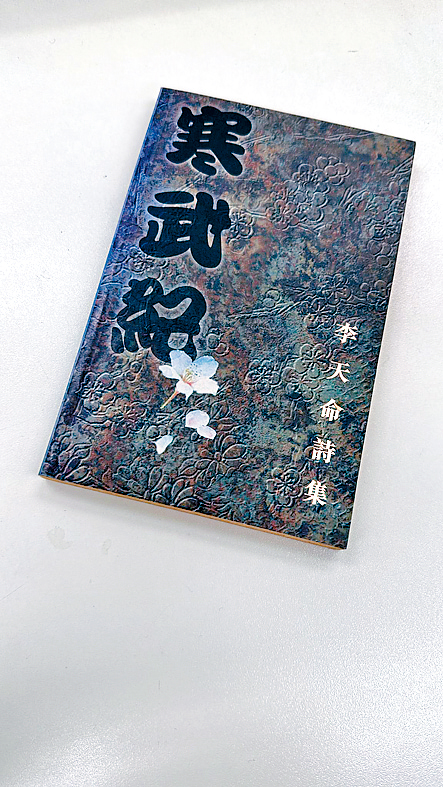 寒武紀
李天命詩集